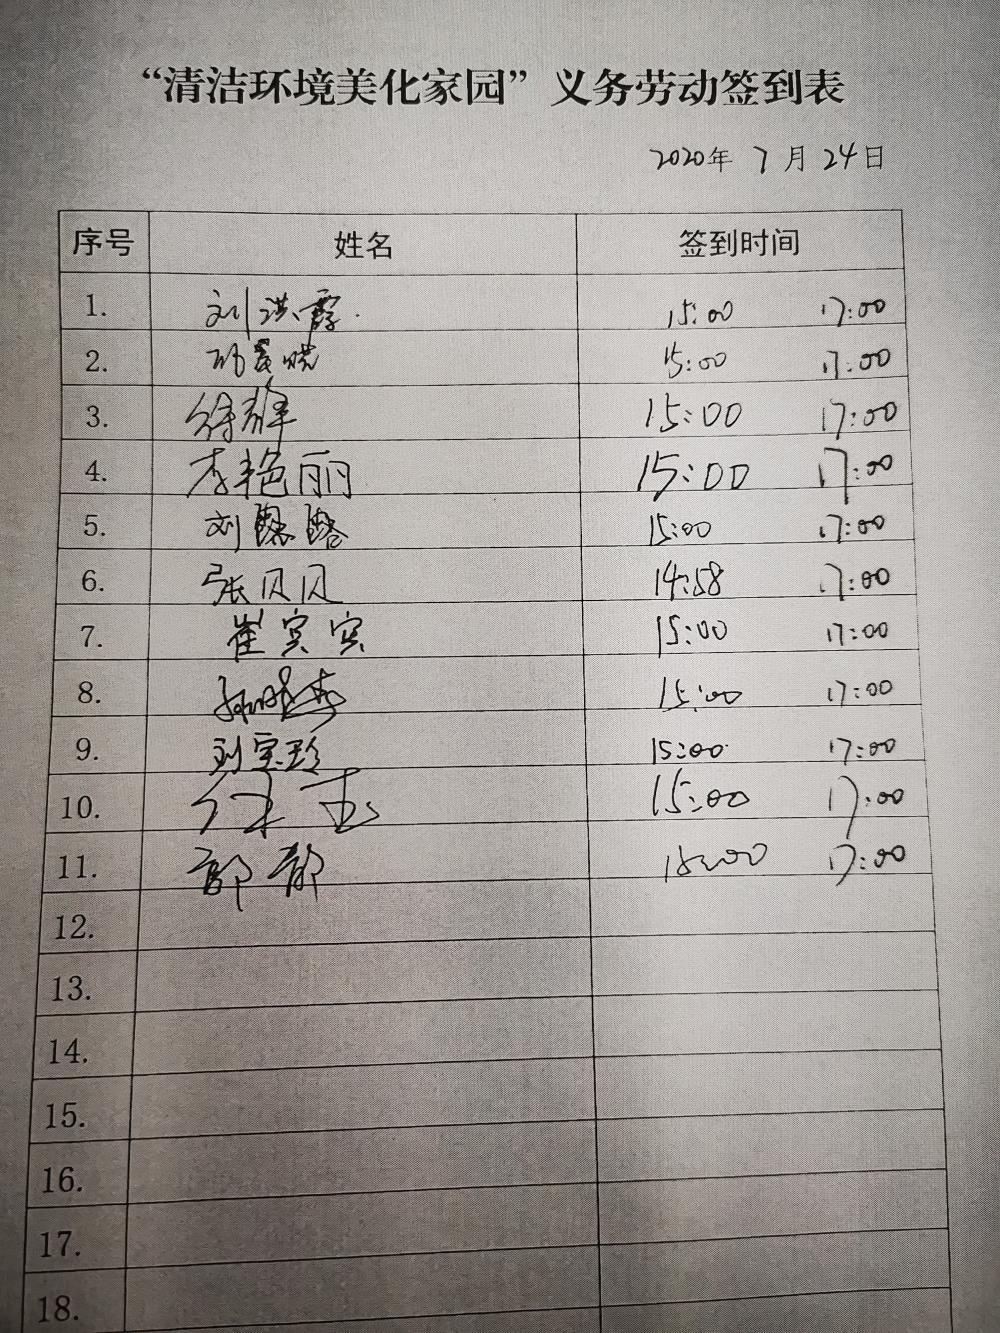 “清洁环境美化家园”义务劳动签到表
2020年 7月 24日
序号 姓名 签到时间
1. 刘洪霞 15:00 17:00
2. 15:00 17:00
3. 徐静 15:00 17:00
4. 李艳丽 15:00 17:00
5. 刘 15:00 17:00
6. 张贝贝 14:58 17:00
7. 崔宾宾 15:00 17:00
8. 15:00 17:00
9. 刘宝玲 15:00 17:00
10. 15:00 17:00
11. 15:00 17:00
12.
13.
14.
15.
16.
17.
18.